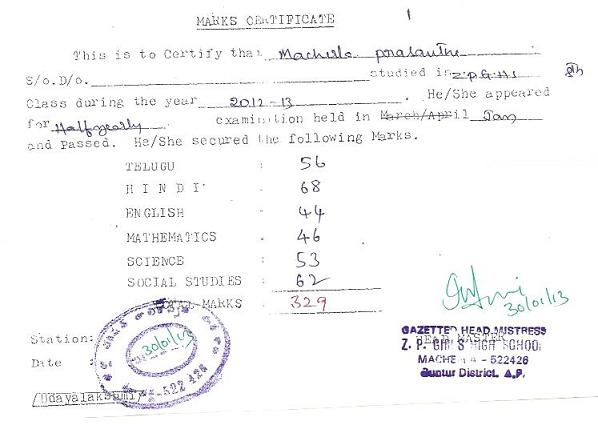 MARKS CERTIFICATE
This is to Certify that Macherla prasanthi
S/o.D/o. studied in Z.P.G.H.S 8th
Class during the year 2012-13 . He/She appeared
for Halfyearly examination held in March/April Jan
and Passed. He/She secured the following Marks.
TELUGU : 56
HINDI : 68
ENGLISH : 44
MATHEMATICS : 46
SCIENCE : 53
SOCIAL STUDIES : 62
TOTAL MARKS : 329
30/01/13
Station:
Date : 30/01/13
GAZETTED HEAD MISTRESS
HEAD MASTER
Z. P. GIRLS HIGH SCHOOL
MACHERLA - 522426
Guntur District. A.P.
522 426
(Udayalakshmi)